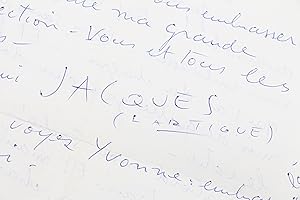 embrasser
de ma grande
ection - Vous et tous les
JACQUES
(LARTIGUE)
voyez Yvonne: embra